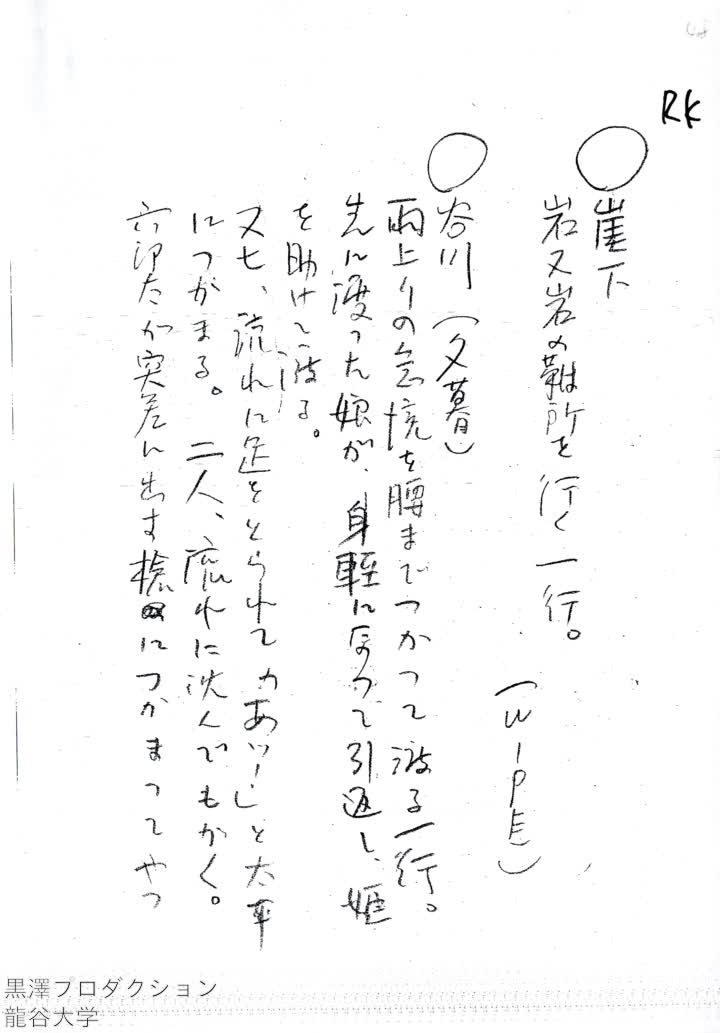 RK
崖下
岩又岩の難所を行く一行。
(WIPE)
谷川(夕暮)
雨上りの急流を腰までつかつて渡る一行。
先に渡った娘が、身軽になつて引返し、姫
を助けて渡る。
又七、流れに足をとられて「あッ!」と太平
につかまる。二人、流れに沈んでもかく。
六郎太が突差に出す槍につかまつてやつ
黒澤プロダクション
龍谷大学